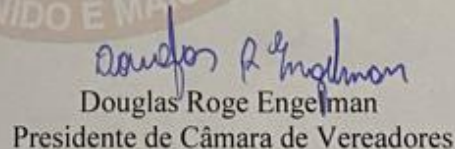 NIDO E MA
Douglas R Engelman
Douglas Roge Engelman
Presidente de Câmara de Vereadores